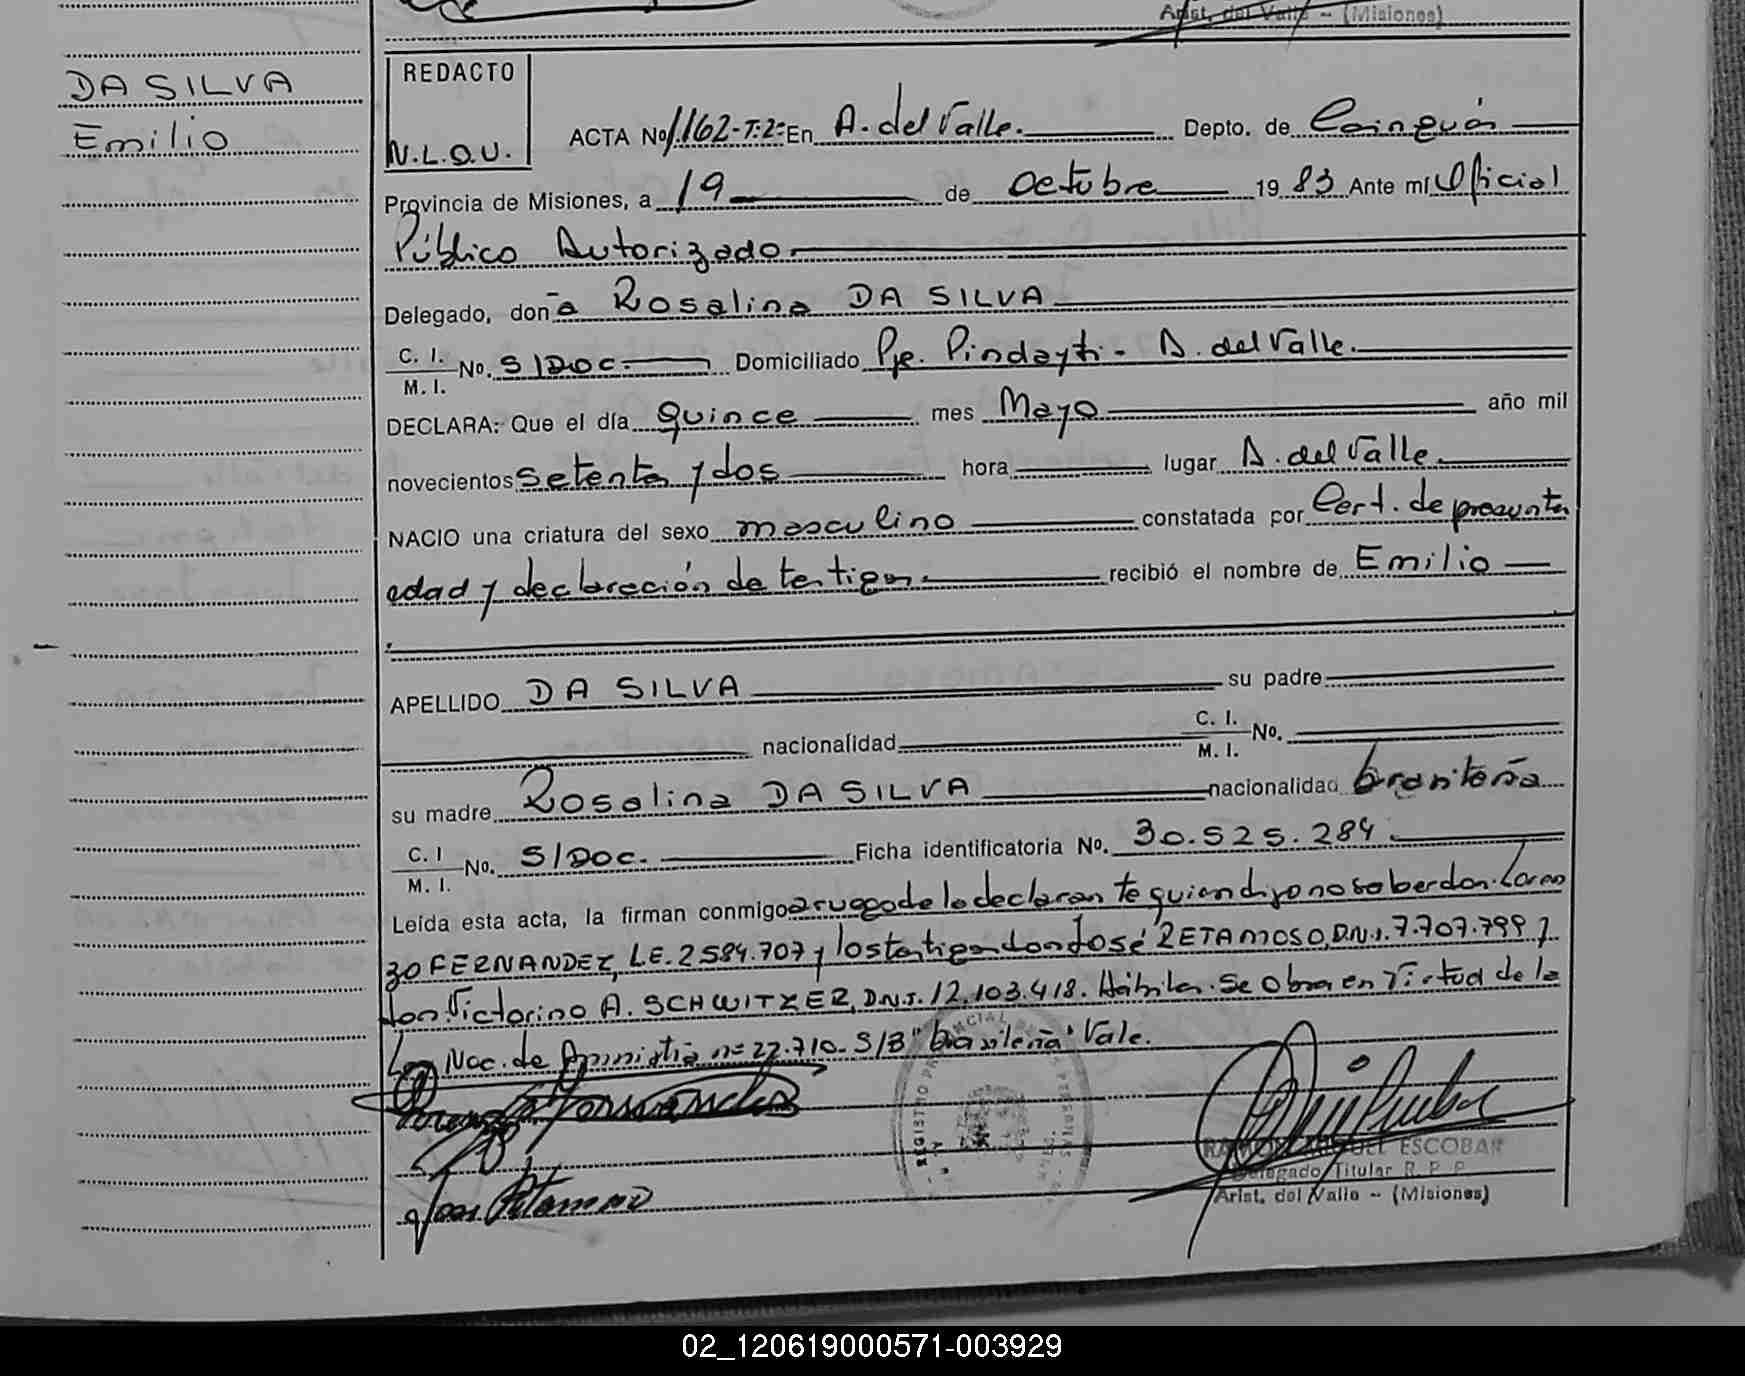 Arist. del Valle - (Misiones)
DA SILVA
Emilio
REDACTO
N.L.O.U.
ACTA Nº 1162-T:2º En A. del Valle. Depto. de Cainguás
Provincia de Misiones, a 19 de Octubre 1983 Ante mí Oficial
Público Autorizado
Delegado, don ̄a Rosalina DA SILVA
C. I.
M. I. No. S/Doc. Domiciliado Pje. Pindayti - A. del Valle.
DECLARA: Que el día quince mes Mayo año mil
novecientos setenta y dos hora lugar A. del Valle.
NACIO una criatura del sexo masculino constatada por Cert. de presunta
edad y declaración de testigos. recibió el nombre de Emilio
APELLIDO DA SILVA su padre
nacionalidad C. I.
M. I. No.
su madre Rosalina DA SILVA nacionalidad brasileña
C. I
M. I. No. S/Doc. Ficha identificatoria No. 30.525.284.
Leída esta acta, la firman conmigo a ruego de la declarante quien dijo no saber don. Loren
zo FERNANDEZ, L.E. 2584.707 y los testigos don José RETAMOSO, D.N.I. 7.707.799 y
don Victorino A. SCHWITZER, D.N.I. 12.103.418. Hábiles. Se Obra en Virtud de la
Ley Nac. de Amnistía nº 22.710. S/B "brasileña" Vale.
REGISTRO PROVINCIAL DE LAS PERSONAS
RAMON MIGUEL ESCOBAR
Delegado Titular R. P. P.
Arist. del Valle - (Misiones)
02_120619000571-003929